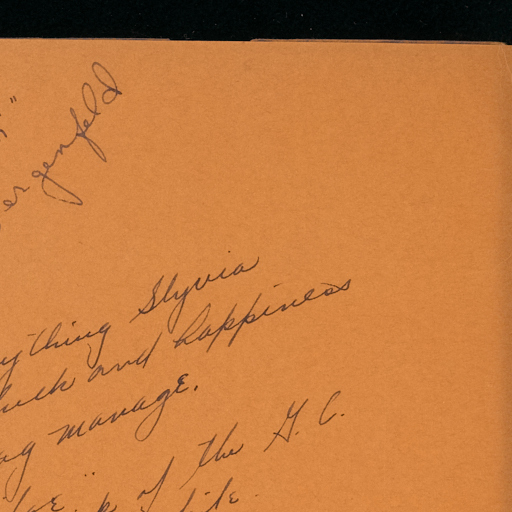 "
ergenfeld
ything Slyvia
luck and happiness
manage.
of the G. C.